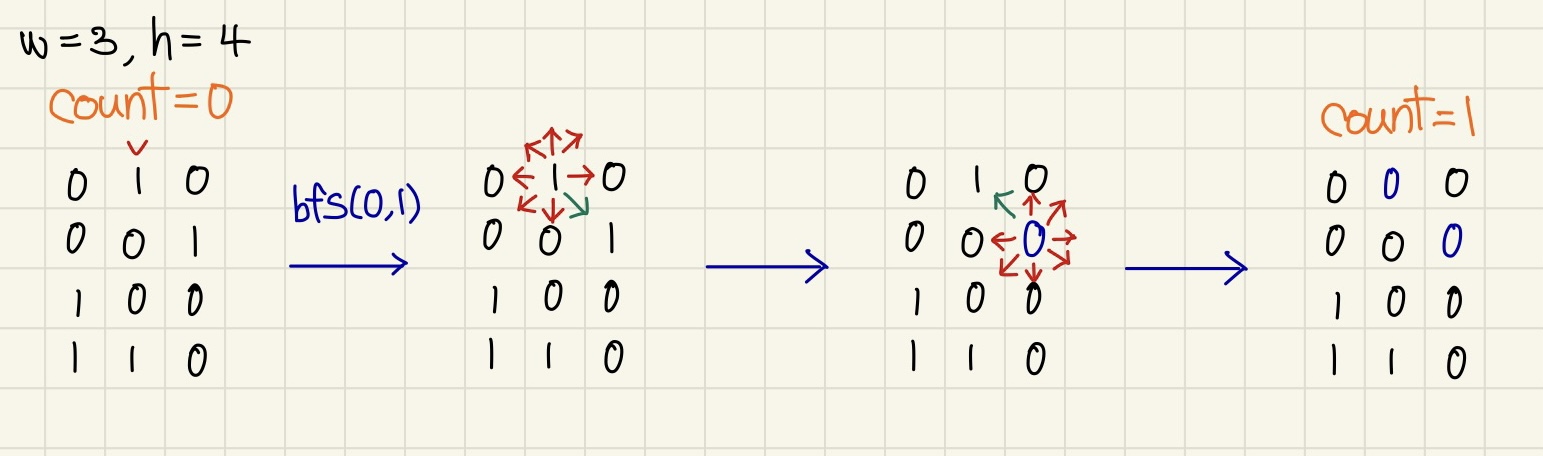 w=3, h=4
count=0
v
0 1 0
0 0 1
1 0 0
1 1 0
bfs(0,1)
0 1 0
0 0 1
1 0 0
1 1 0
0 1 0
0 0 0
1 0 0
1 1 0
count=1
0 0 0
0 0 0
1 0 0
1 1 0